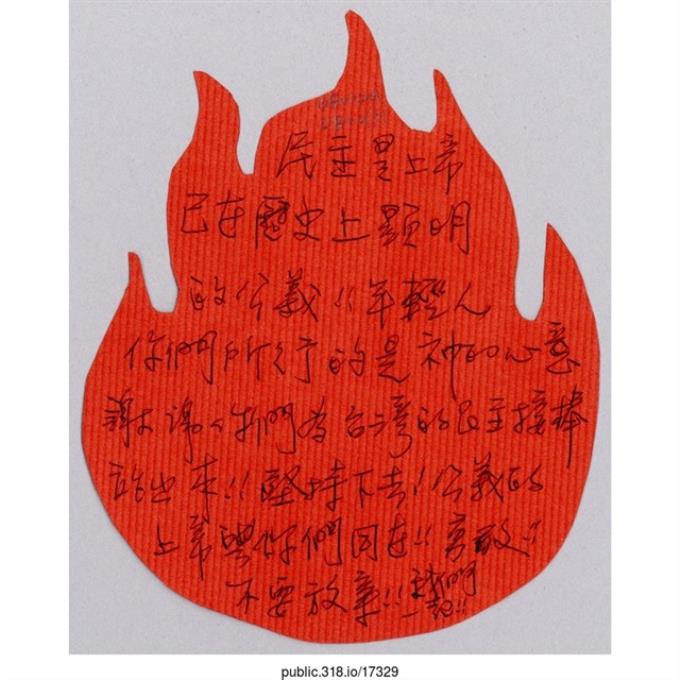 民主是上帝
已在歷史上顯明
的公義!!年輕人
你們所行的是神的心意
謝謝你們為台灣的民主接棒
站出來!!堅持下去!公義的
上帝與你們同在!!勇敢!!
不要放棄!!我們
一起!!
public.318.io/17329